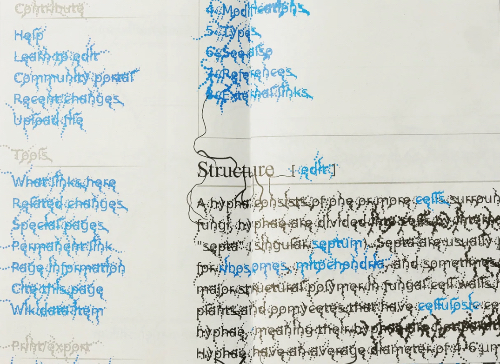 Contribute
Help
Learn to edit
Community portal
Recent changes
Upload file
Tools
What links here
Related changes
Special pages
Permanent link
Page information
Cite this page
Wikidata item
Print/export
4 Modifications
5 Types
6 See also
7 References
8 External links
Structure [edit]
A hypha consists of one or more cells surroun
fungi, hyphae are divided into
septa" (singular septum). Septa are usually
for ribosomes, mitochondria, and sometimes
major structural polymer in fungal cell walls
plants and oomycetes that have cellulose ce
hyphae, meaning their hyphae are
Hyphae have an average diameter of 4–6 µm